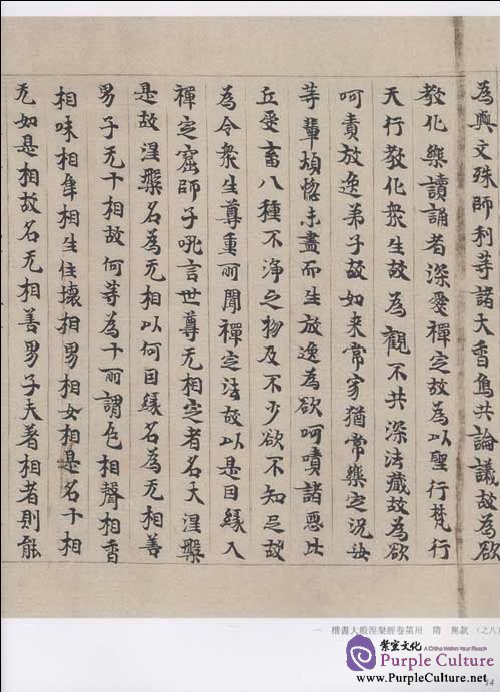 為與文殊師利等諸大香象共論議故為欲
教化樂讀誦者深愛禪定故為以聖行梵行
天行教化眾生故為觀不共深法藏故為欲
呵責放逸弟子故如來常寂猶常樂定況汝
等輩煩惱未盡而生放逸為欲呵嘖諸惡比
丘受畜八種不淨之物及不少欲不知足故
為令眾生尊重所聞禪定法故以是因緣入
禪定窟師子吼言世尊无相定者名大涅槃
是故涅槃名為无相以何因緣名為无相善
男子无十相故何等為十所謂色相聲相香
相味相觸相生住壞相男相女相是名十相
无如是相故名无相善男子夫著相者則能
一 楷書大般涅槃經卷第卅 隋 無款 (之八)
紫室文化 A China Within Your Reach
Purple Culture
www.PurpleCulture.net
14